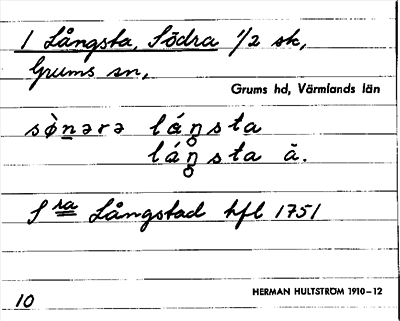 1 Långsta, Södra 1/2 sk,
Grums sn,
Grums hd, Värmlands län
sø̀nərə lá̊ŋsta
lá̊ŋsta ä.
S ra Långstad hfl 1751
10
HERMAN HULTSTRÖM 1910–12